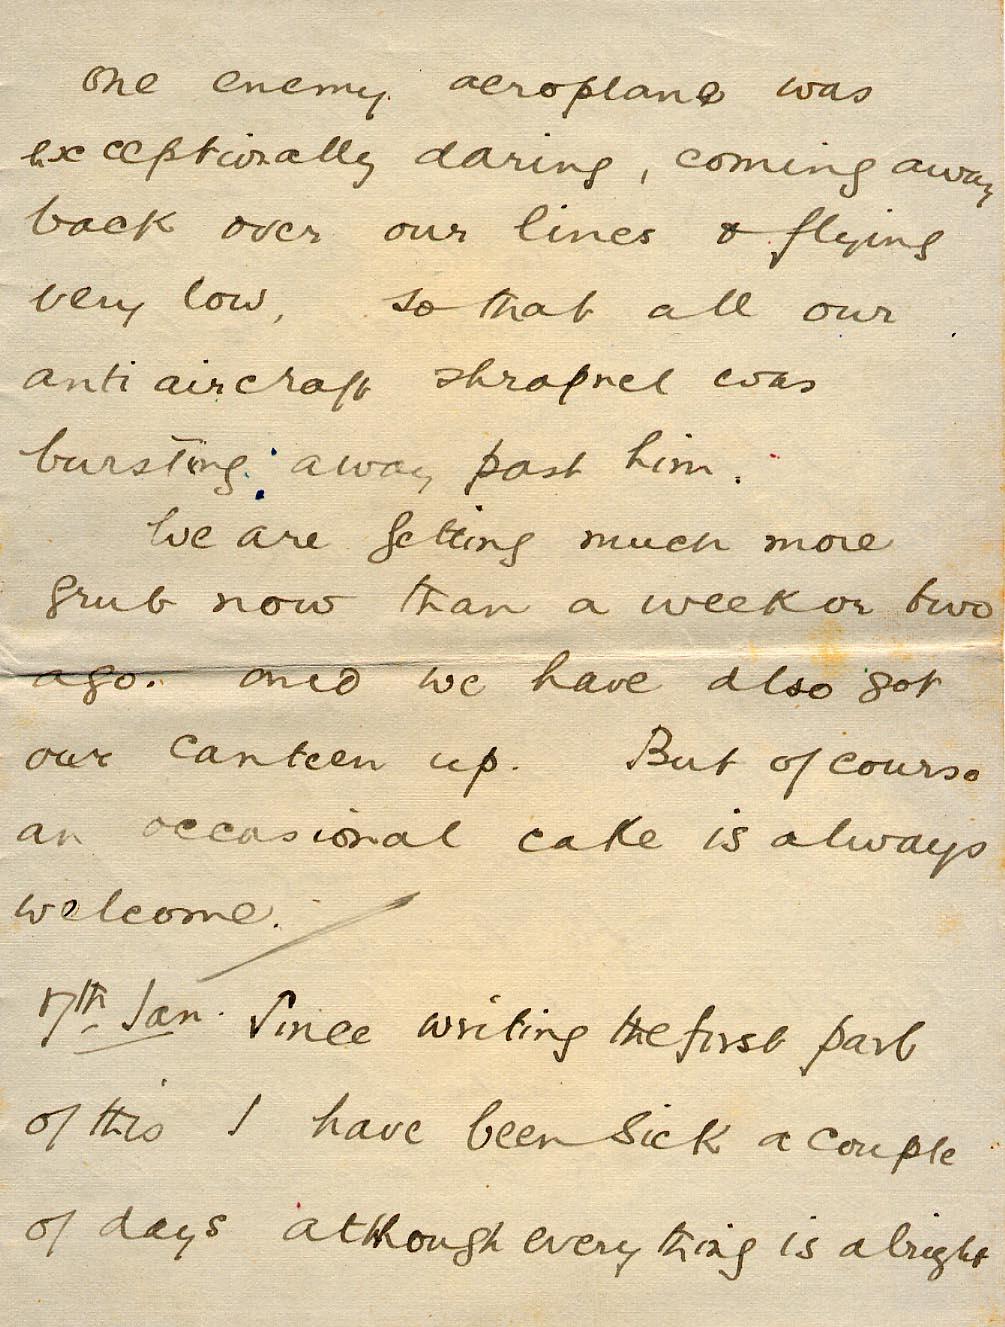 One enemy aeroplane was
exceptionally daring, coming away
back over our lines & flying
very low, so that all our
anti aircraft shrapnel was
bursting away past him.
We are getting much more
grub now than a week or two
ago. and we have also got
our canteen up. But of course
an occasional cake is always
welcome.
17th Jan. Since writing the first part
of this I have been sick a couple
of days although everything is alright